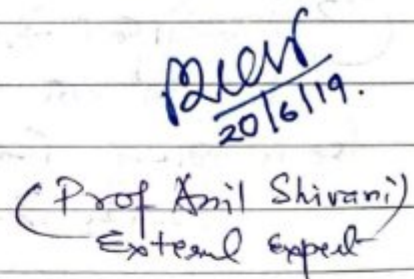 20/6/19.
(Prof Anil Shivani)
External Expert